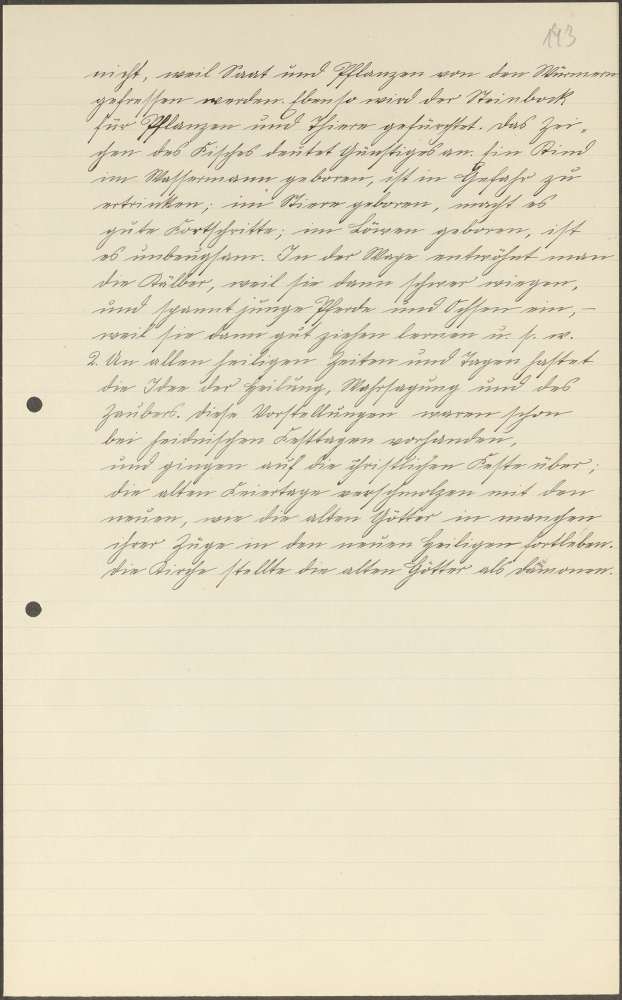 143
nicht, weil Saat und Pflanzen von den Würmern
gefressen werden. Ebenso wird der Steinbock
für Pflanzen und Thiere gefürchtet. Das Zei-
chen des Fisches deutet Günstiges an. Ein Kind
im Wassermann geboren, ist in Gefahr zu
ertrinken; im Stiere geboren, macht es
gute Fortschritte; im Löwen geboren, ist
es unbeugsam. In der Wage entwöhnt man
die Kälber, weil sie dann schwer wiegen,
und spannt junge Pferde und Ochsen ein, –
weil sie dann gut ziehen lernen u. s. w.
2. An allen heiligen Zeiten und Tagen haftet
die Idee der Heilung, Wahrsagung und des
Zaubers. Diese Vorstellungen waren schon
bei heidnischen Festtagen vorhanden,
und gingen auf die christlichen Feste über;
die alten Feiertage verschmolzen mit den
neuen, wie die alten Götter in manchen
ihrer Züge in den neuen Heiligen fortleben.
Die Kirche stellte die alten Götter als Dämonen.